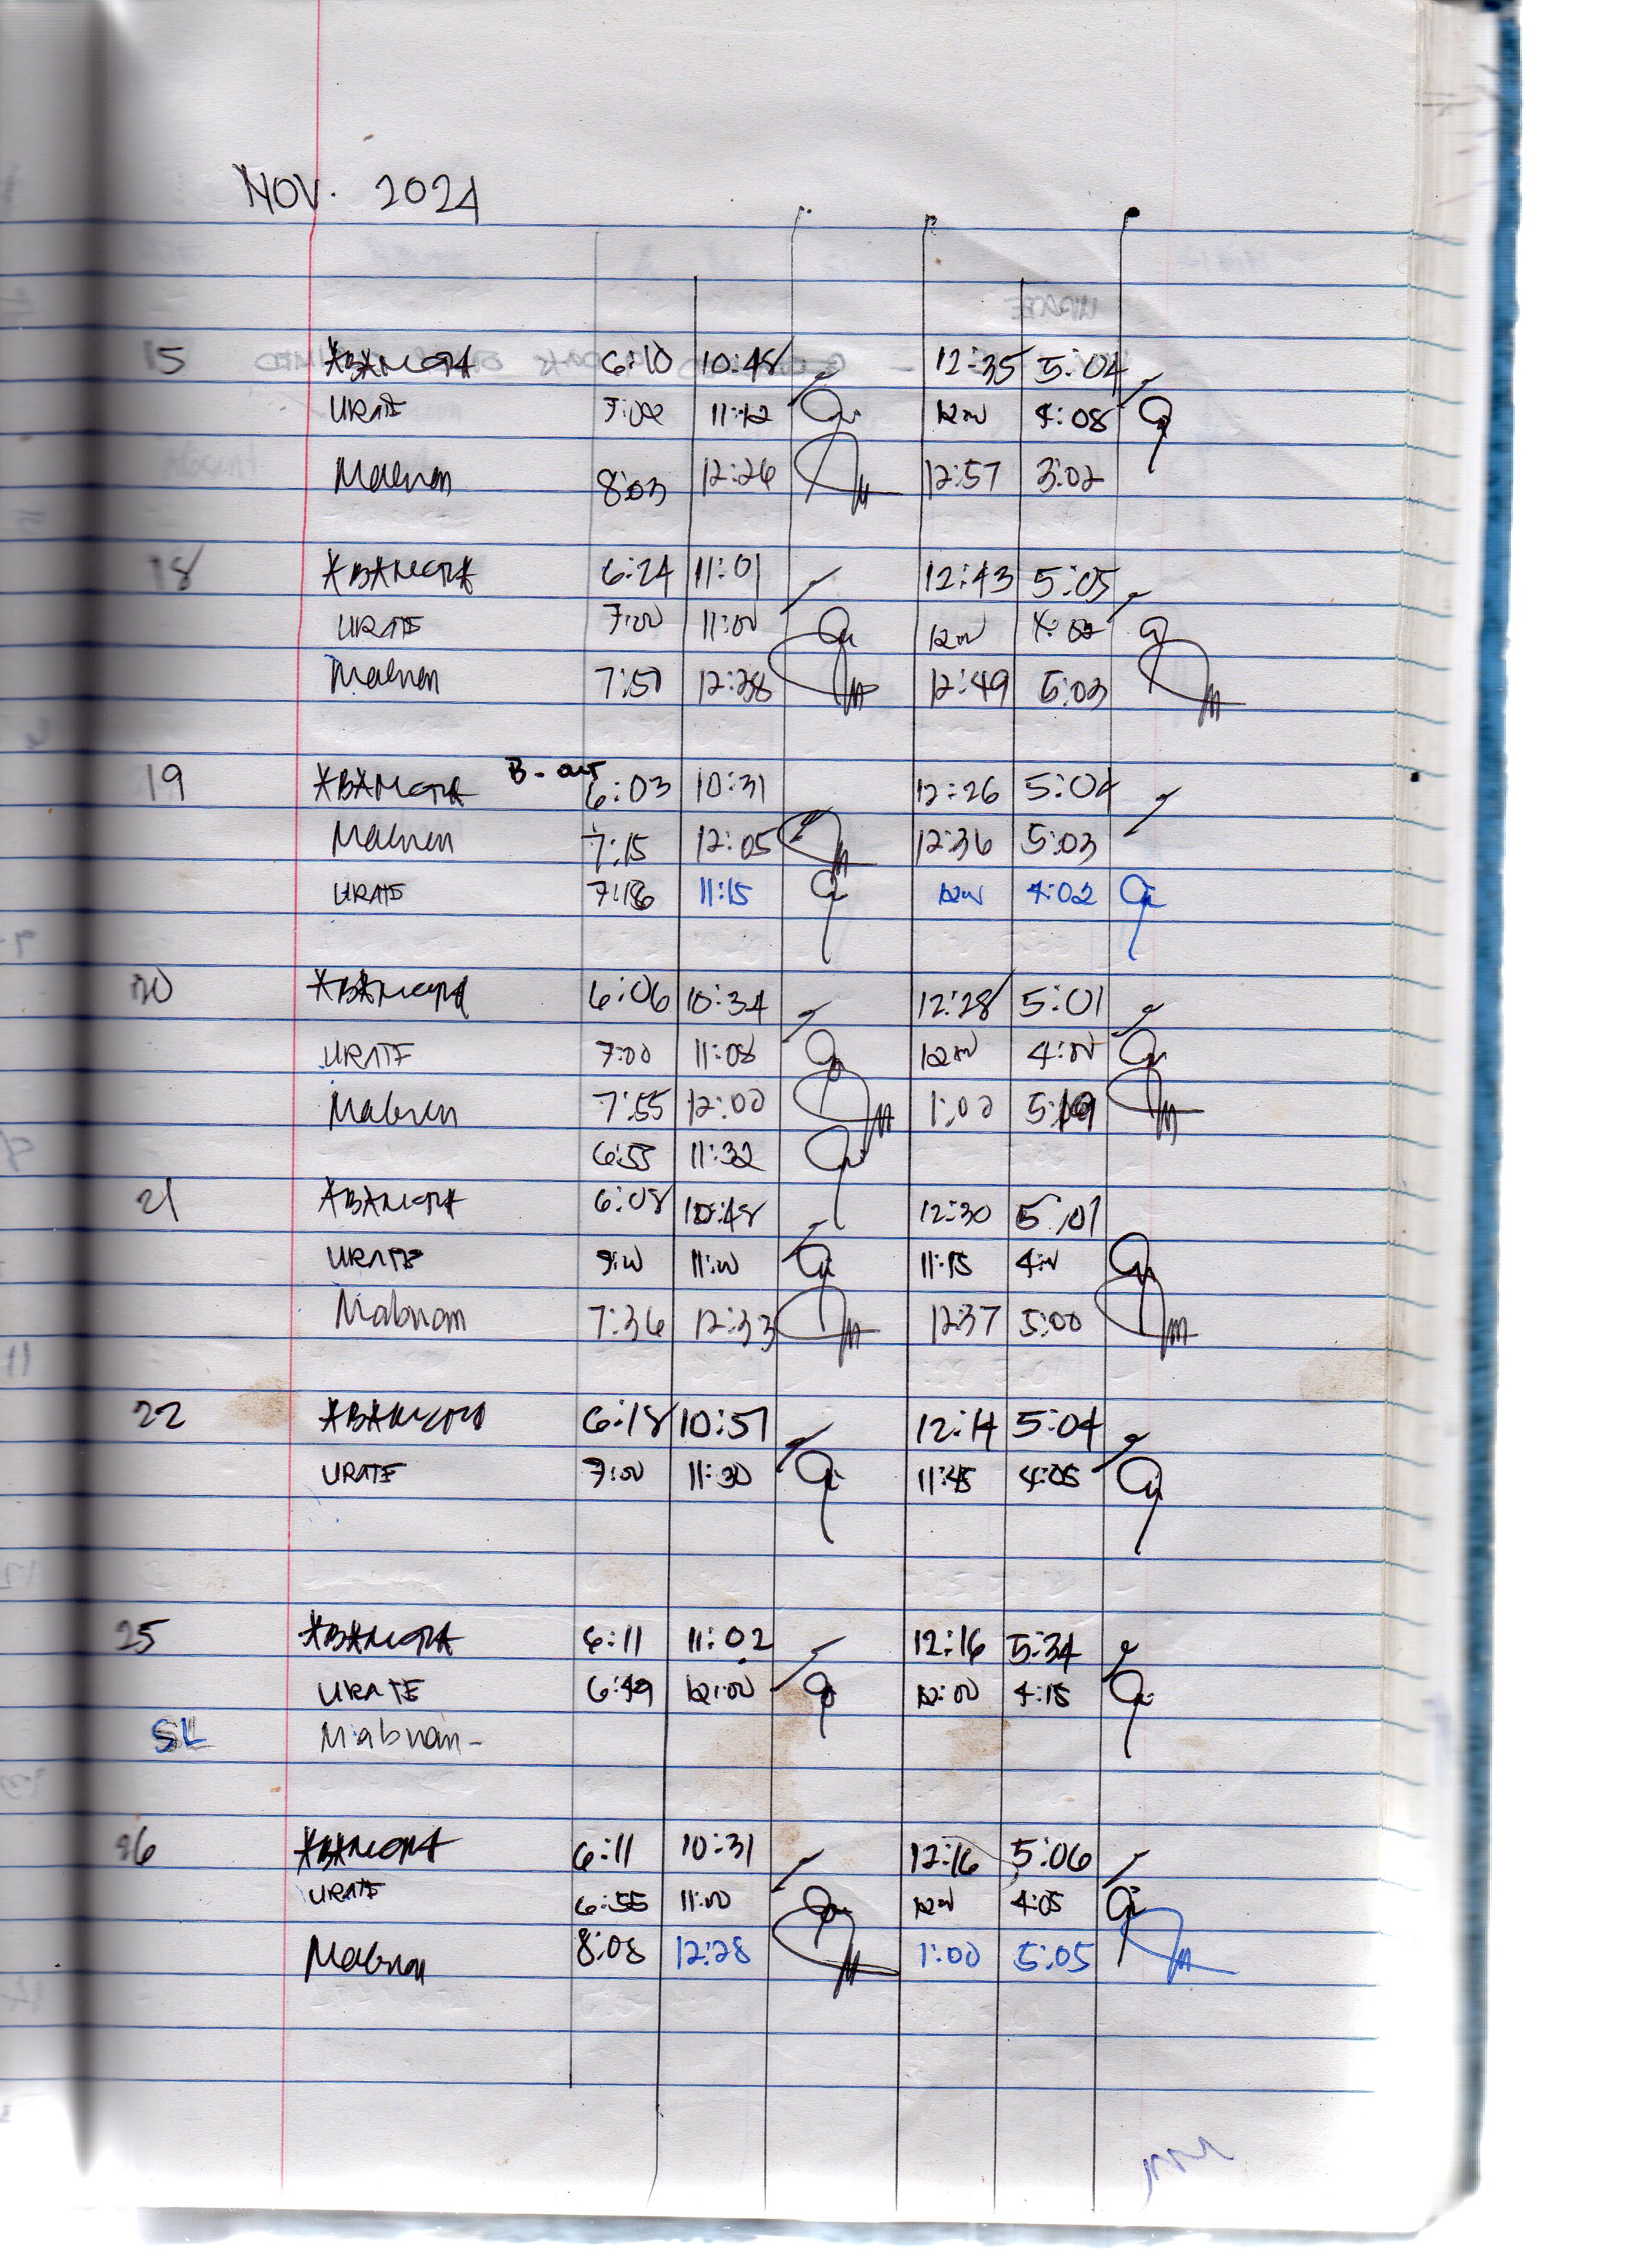 NOV. 2024
15 ABANGTA 6:10 10:48 12:35 5:04
URATE 7:02 11:12 12:00 4:08
Mabnan 8:03 12:26 12:57 3:02
18 ABANGTA 6:24 11:01 12:43 5:05
URATE 7:00 11:00 12:00 4:02
Mabnan 7:57 12:28 12:49 5:03
19 ABANGTA B-out 6:03 10:31 12:26 5:04
Mabnan 7:15 12:05 12:36 5:03
URATE 7:18 11:15 12:00 4:02
20 6:06 10:34 12:28 5:01
URATE 7:00 11:08 12:00 4:00
Mabnan 7:55 12:00 1:00
6:55 11:32
21 ABANGTA 6:08 10:48 12:30 5:01
URATE 11:00 11:15 4:00
Mabnan 7:36 12:33 12:37 5:00
22 6:18 10:57 12:14 5:04
URATE 7:00 11:30 11:45 4:05
25 ABANGTA 6:11 11:02 12:16 5:34
URATE 6:49 12:00 12:00 4:15
SL Mabnan-
26 ABANGTA 6:11 10:31 12:16 5:06
URATE 6:55 11:00 12:00 4:05
Mabnan 8:08 12:28 1:00 5:05